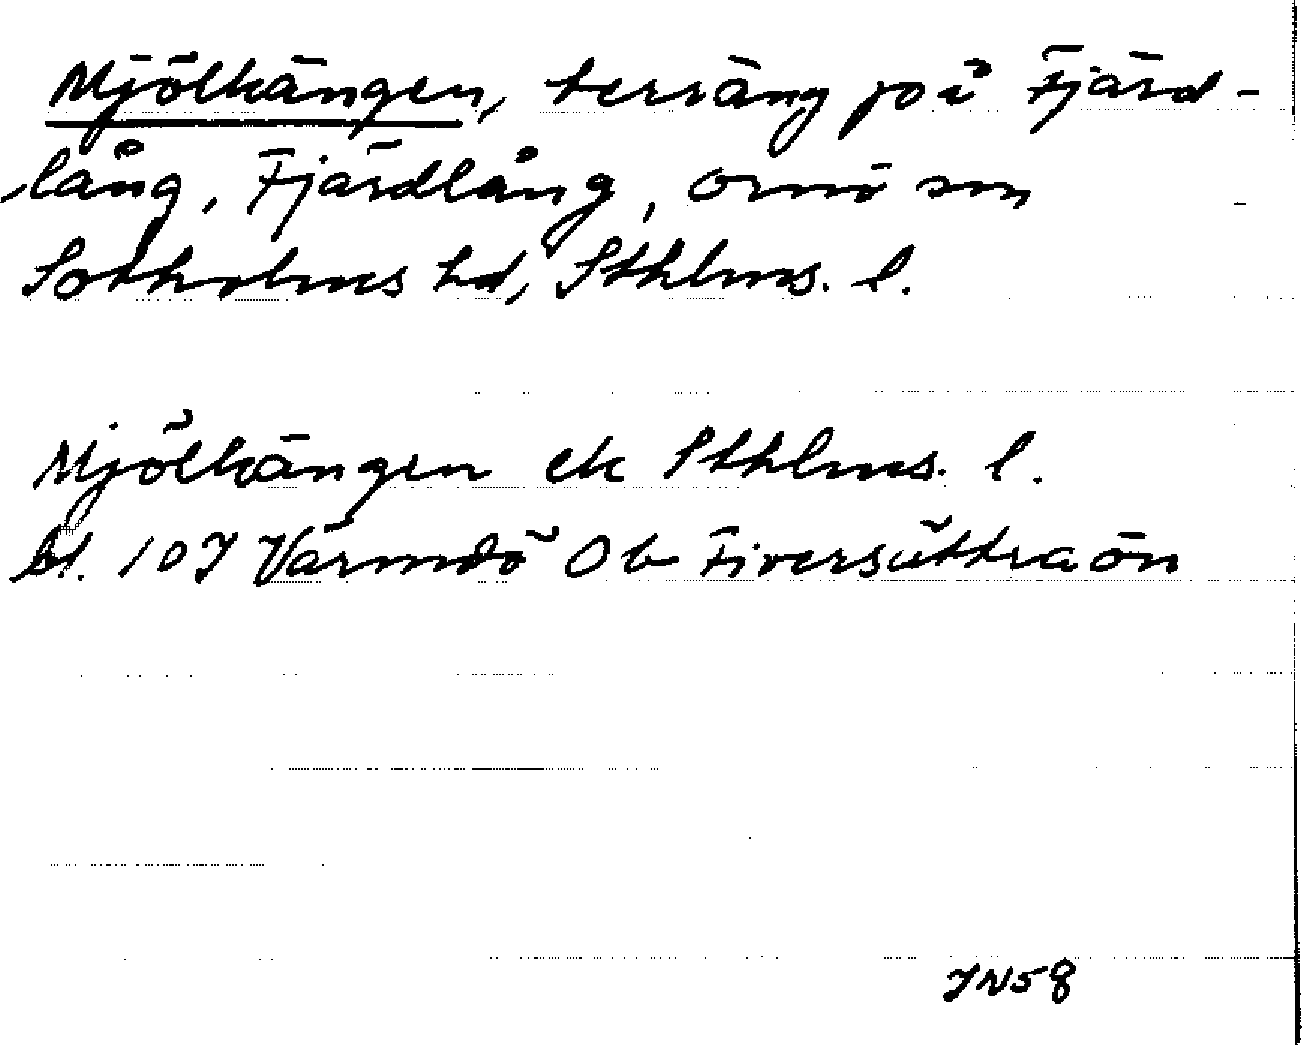 Mjölkängen, terräng på Fjärd-
lång, Fjärdlång, Ornö sn
Sotholms hd, Sthlms. l.
Mjölkängen ek Sthlms. l.
bl. 10J Värmdö Ob Fiversättraön
JN58